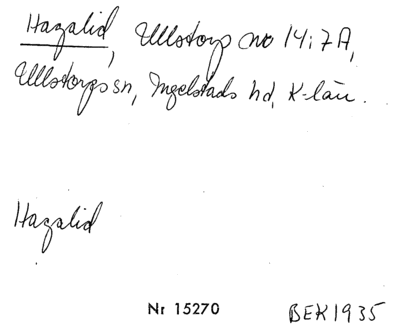 Hagalid, Ullstorp no 14:7A,
Ullstorps sn, Ingelstads hd, K-län.
Hagalid
Nr 15270 BEK1935